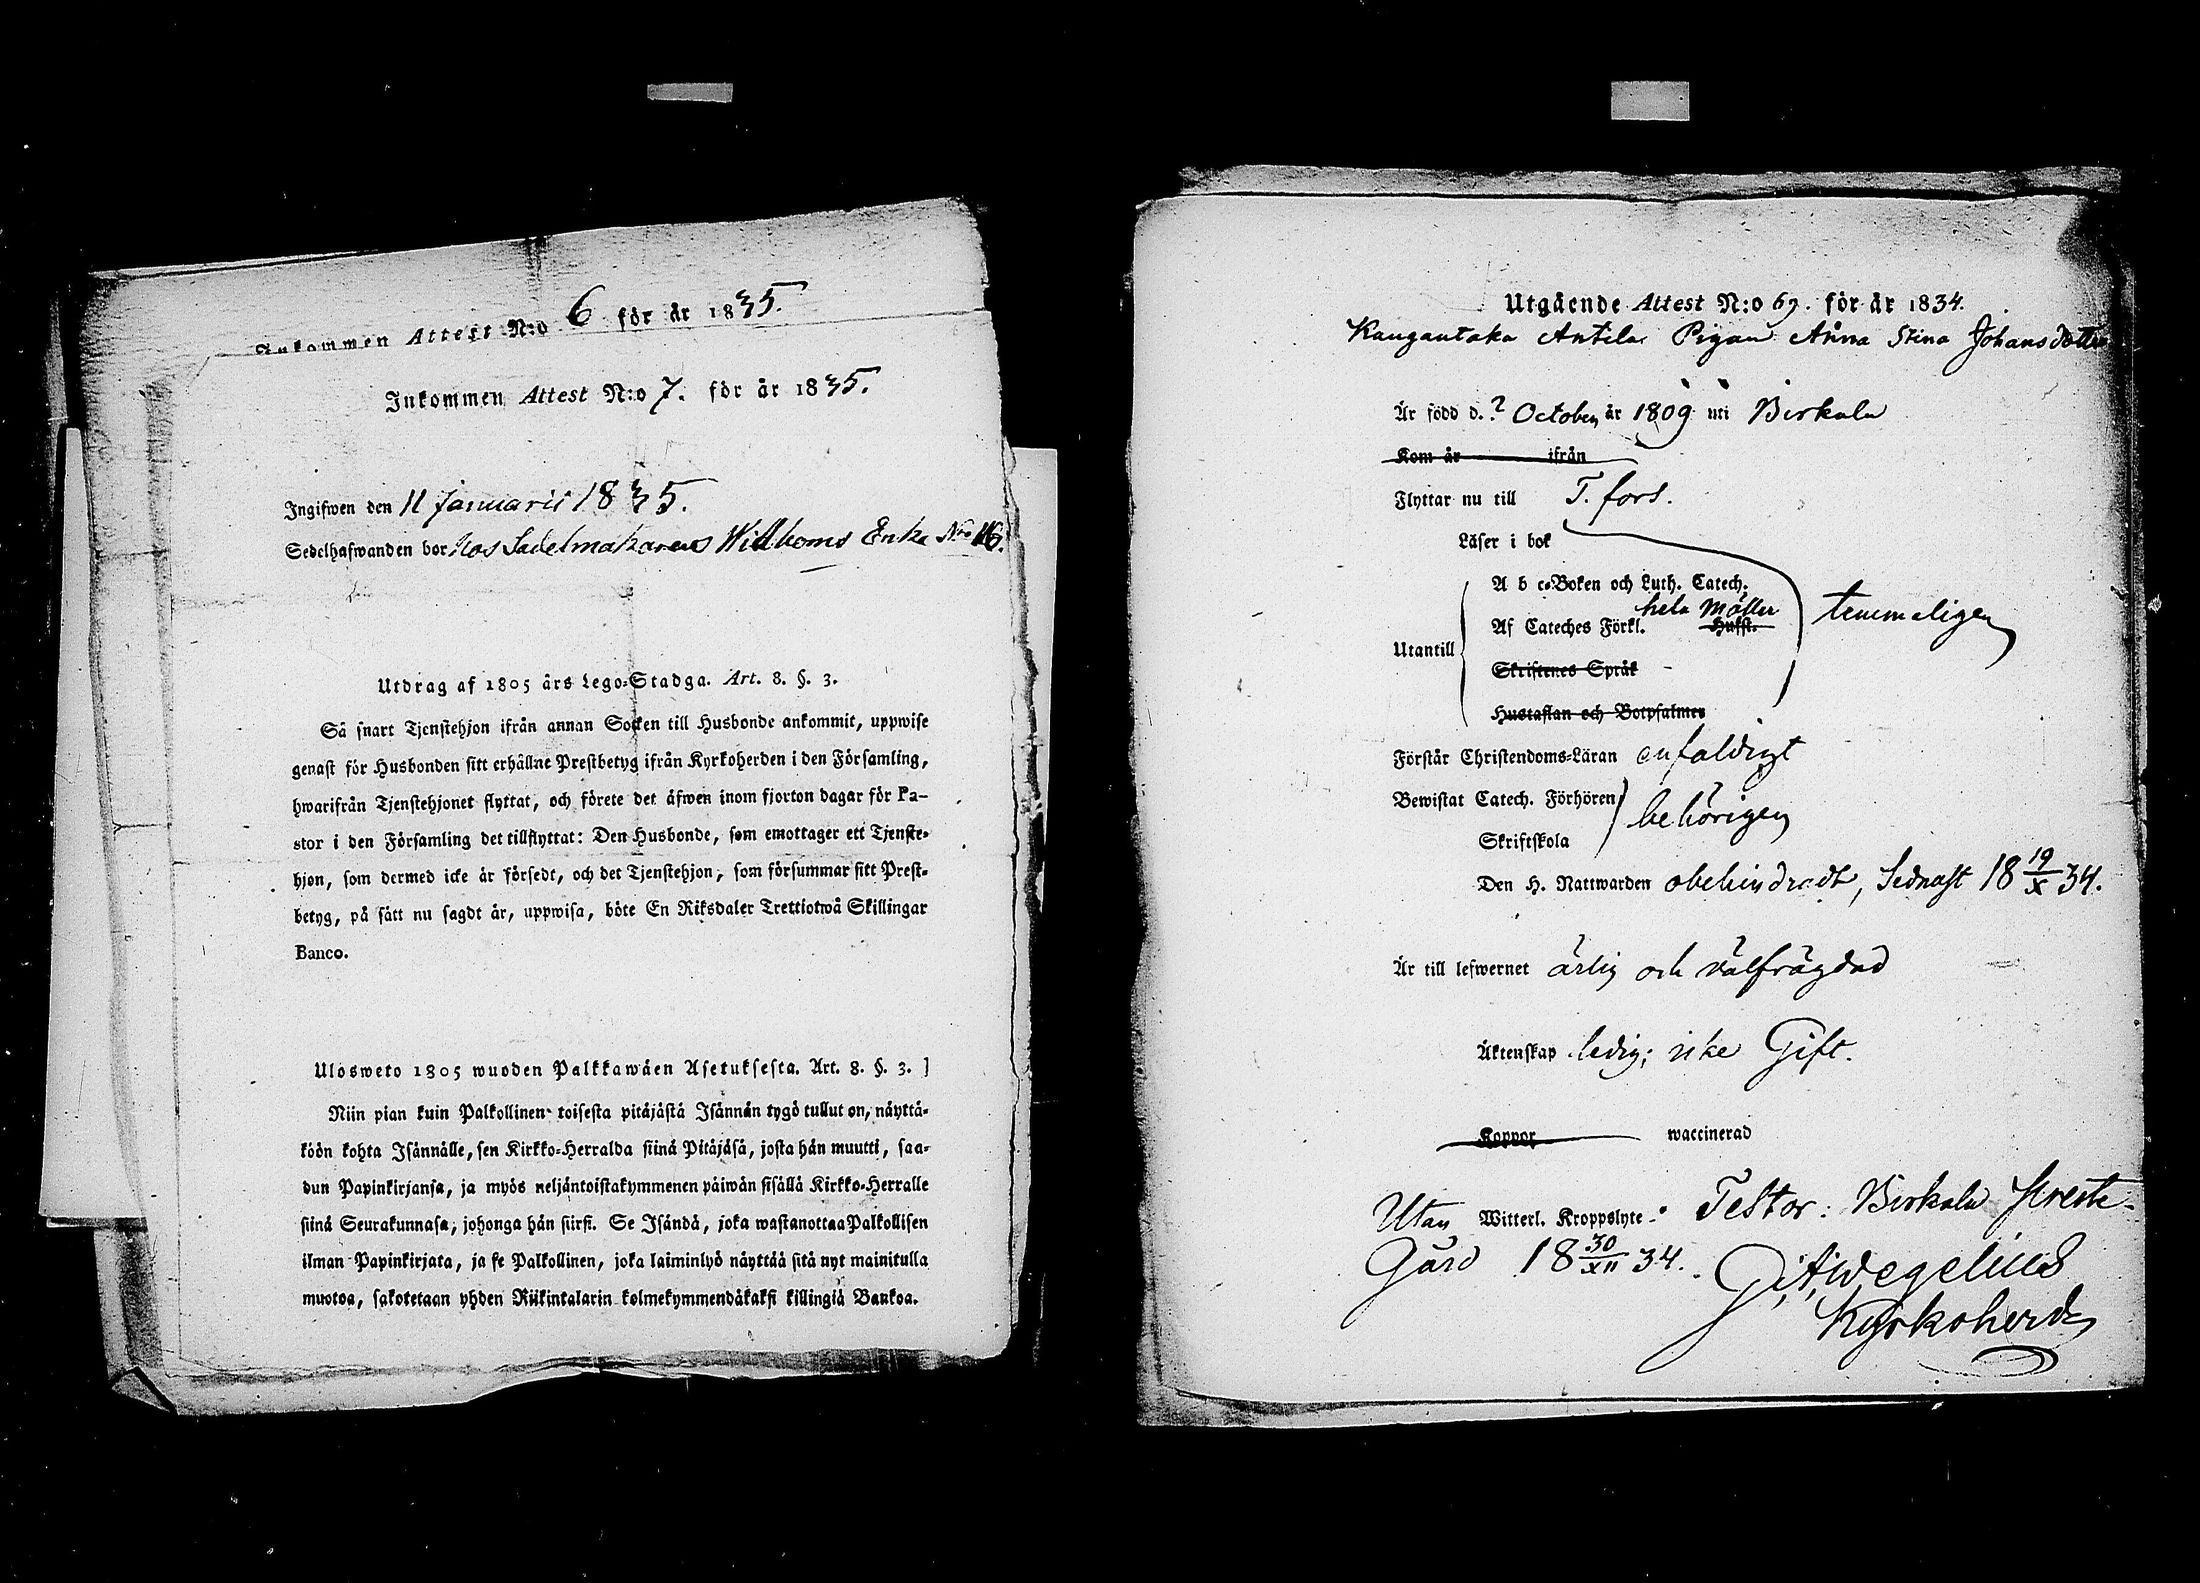 Inkommen Attest N:o 6 för år 1835.
Inkommen Attest N:o 7. för år 1835.
Ingifwen den 11 Januarii 1835.
Sedelhafwanden bor hos Sadelmakarens Willboms Enka Nro 116.
Utdrag af 1805 års Lego-Stadga. Art. 8. §. 3.
Så snart Tjenstehjon ifrån annan Socken till Husbonde ankommit, uppwise
genast för Husbonden sitt erhållne Prestbetyg ifrån Kyrkoherden i den Församling,
hwarifrån Tjenstehjonet flyttat, och förete det äfwen inom fjorton dagar för Pa-
stor i den Församling det tillflyttat: Den Husbonde, som emottager ett Tjenste-
hjon, som dermed icke är försedt, och det Tjenstehjon, som försummar sitt Prest-
betyg, på sätt nu sagdt är, uppwisa, böte En Riksdaler Trettiotwå Skillingar
Banco.
Ulosweto 1805 wuoden Palkkawäen Asetuksesta. Art. 8. §. 3.
Niin pian kuin Palkollinen toisesta pitäjästä Isännän tygö tullut on, näyttä-
köön kohta Isännälle, sen Kirkko-Herralda siinä Pitäjäsä, josta hän muutti, saa-
dun Papinkirjansa, ja myös neljäntoistakymmenen päiwän sisällä Kirkko-Herralle
siinä Seurakunnasa, johonga hän siirsi. Se Isändä, joka wastanottaa Palkollisen
ilman Papinkirjata, ja se Palkollinen, joka laiminlyö näyttää sitä nyt mainitulla
muotoa, sakotetaan yhden Riikintalarin kolmekymmendäkaksi killingiä Bankoa.
Utgående Attest N:o 67. för år 1834.
Kangantaka Antila Pigan Anna Stina Johansdotter
Är född d. ? October år 1809 uti Birkala
Kom år ifrån
Flyttar nu till T. fors.
Läser i bok
A b c-Boken och Luth. Catech.
hela Möller
Af Cateches Förkl. Husst.
Utantill
temmeligen
Skriftenes Språk
Hustaflan och Botpsalmer
Förstår Christendoms-Läran enfaldigt
Bewistat Catech. Förhören
behörigen
Skriftskola
Den H. Nattwarden obehindradt, Sednast 18 19/X 34.
Är till lefwernet ärlig och välfrägdad
Äktenskap ledig; icke Gift.
Koppor waccinerad
Utan Witterl. Kroppslyte. Testor: Birkala Preste-
Gård 18 30/XII 34.
Wegelius
Kyrkoherde